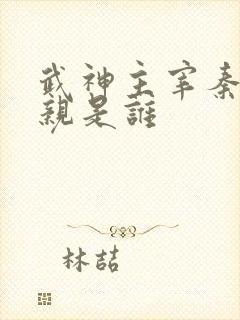 武神主宰秦
親是誰
林喆